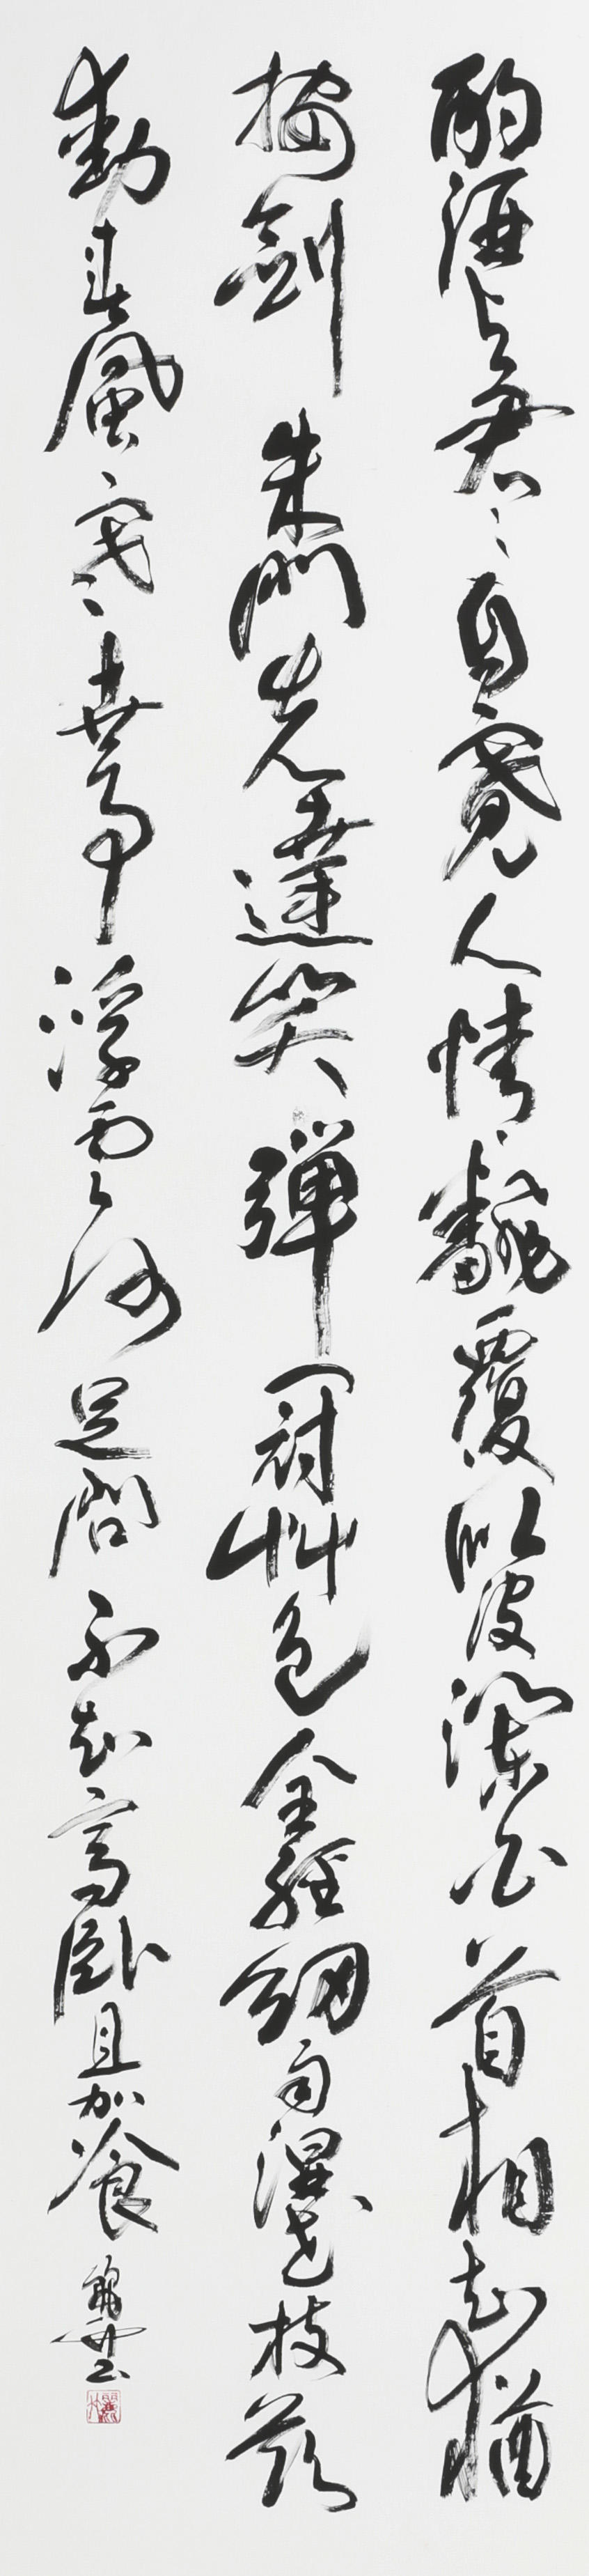 酌酒与君〻自寛人情飜覆似波瀾白首相知猶
按劍朱門先達笑彈冠艸色全經細雨濕花枝欲
動春風寒世事浮雲何足問不如高臥且加餐